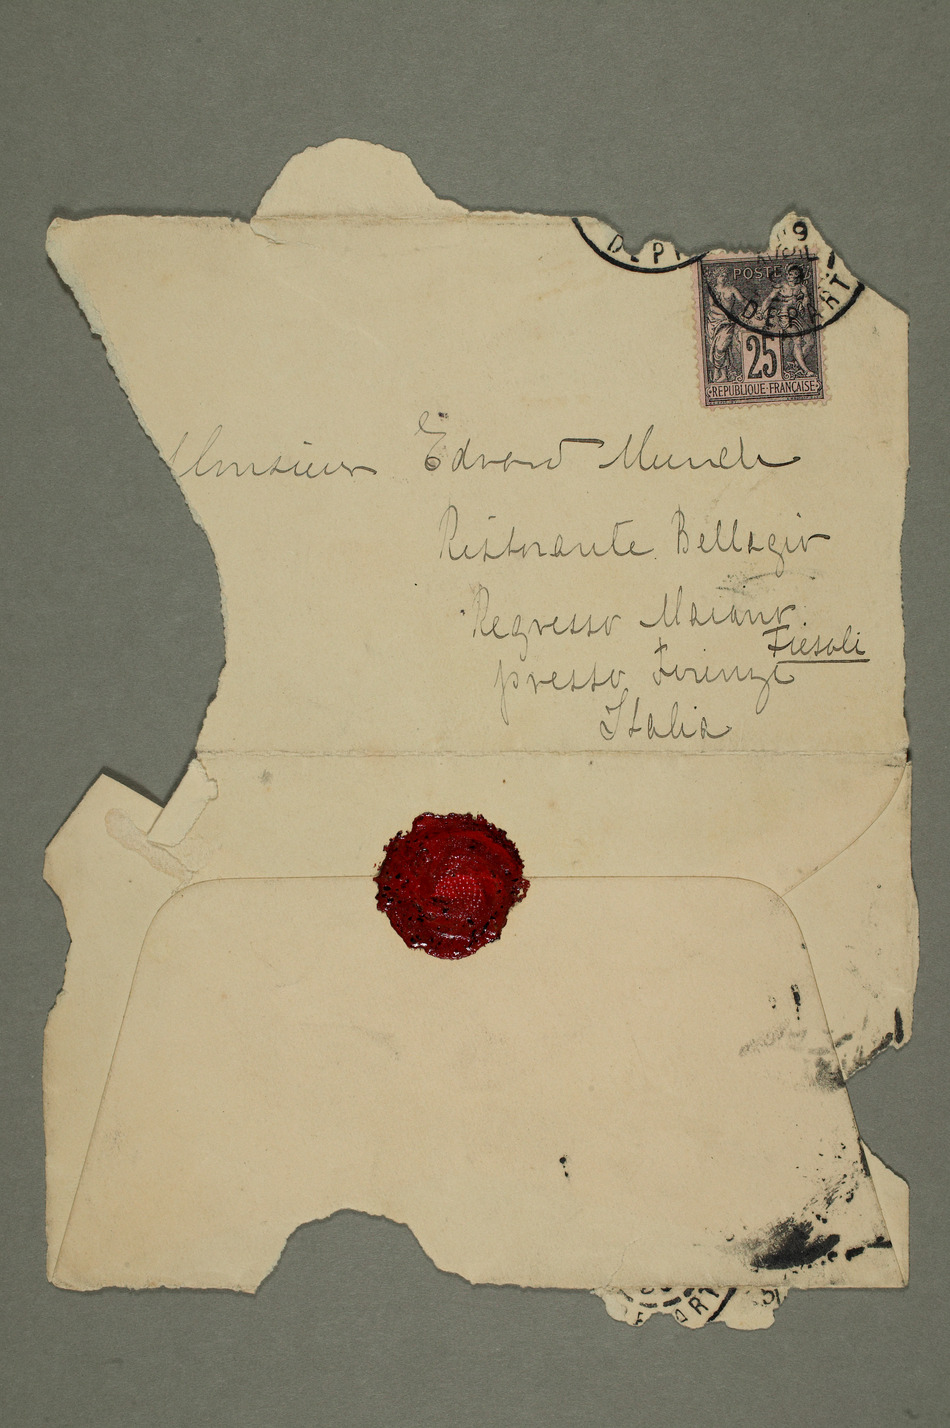 DÉPART
9
POSTE
25
RÉPUBLIQUE FRANÇAISE
Monsieur Edvard Munch
Ristorante Bellagio
Regresso Maiano
Fiesoli
presso Firenze
Italia